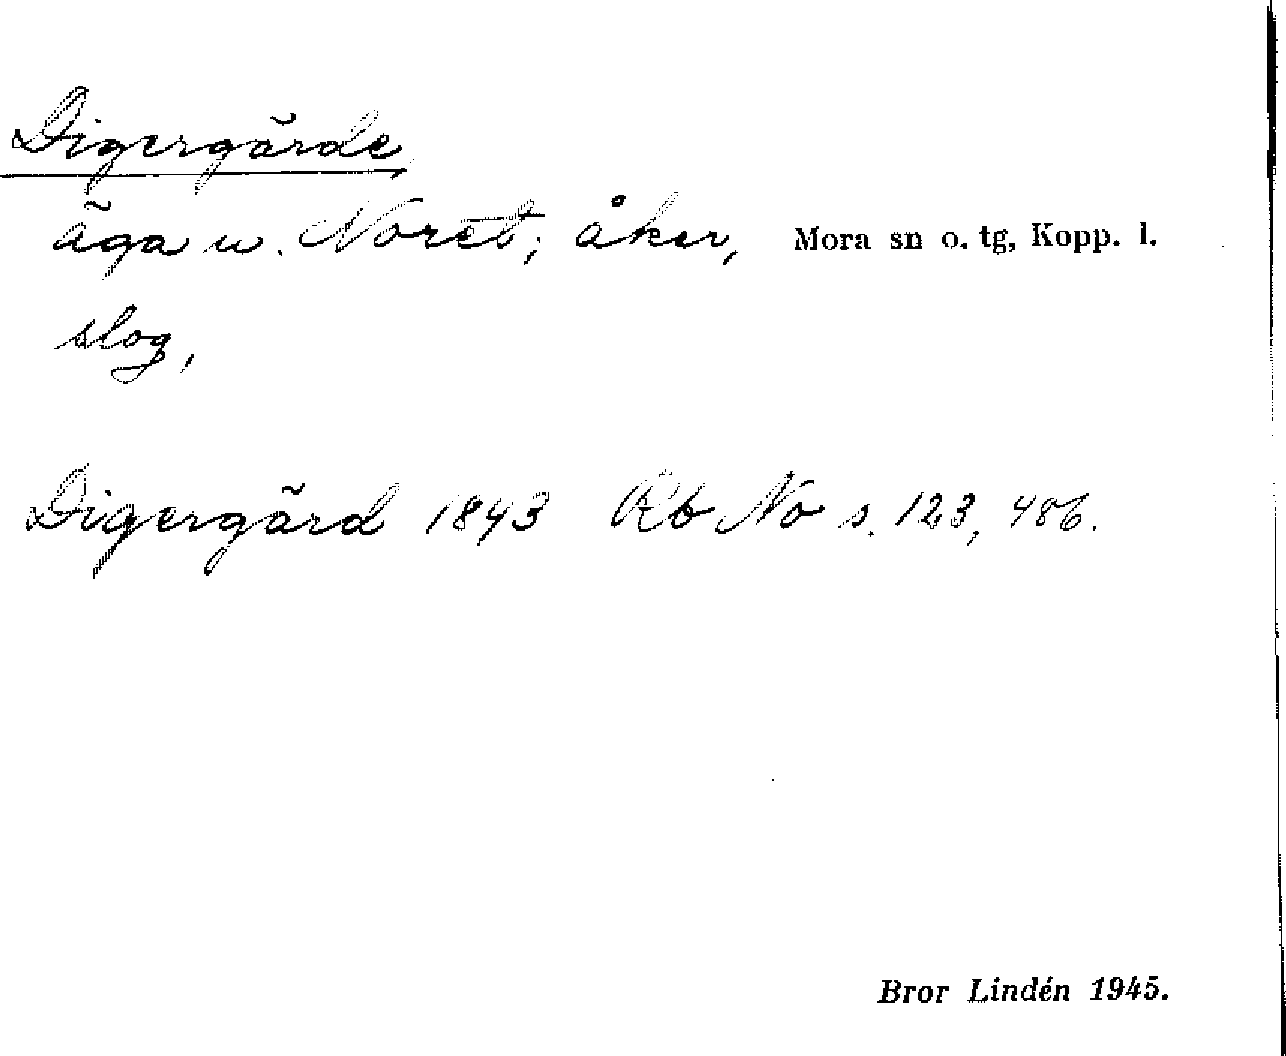 Digergärde
äga u. Noret; åker, Mora sn o. tg, Kopp. l.
slog,
Digergärd 1843 Rb No s. 123, 486.
Bror Lindén 1945.